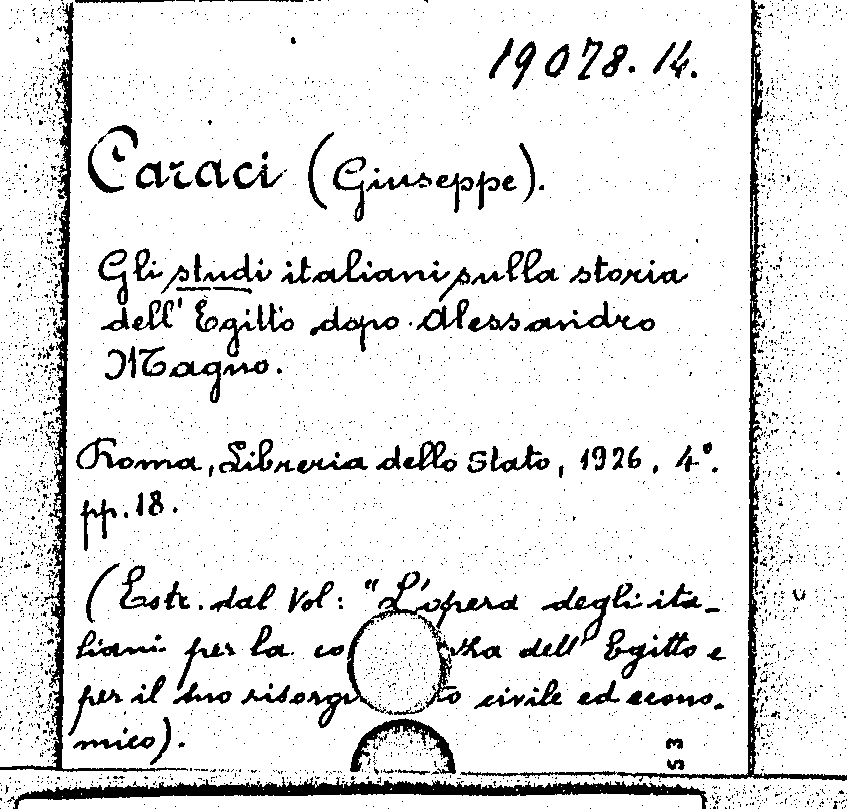 19078.14.
Caraci (Giuseppe).
Gli studi italiani sulla storia
dell' Egitto dopo Alessandro
Magno.
Roma, Libreria dello Stato, 1926, 4°.
pp. 18.
(Estr. dal Vol: "L'opera degli ita-
liani per la dell' Egitto e
per il suo civile ed econo-
mico).
53